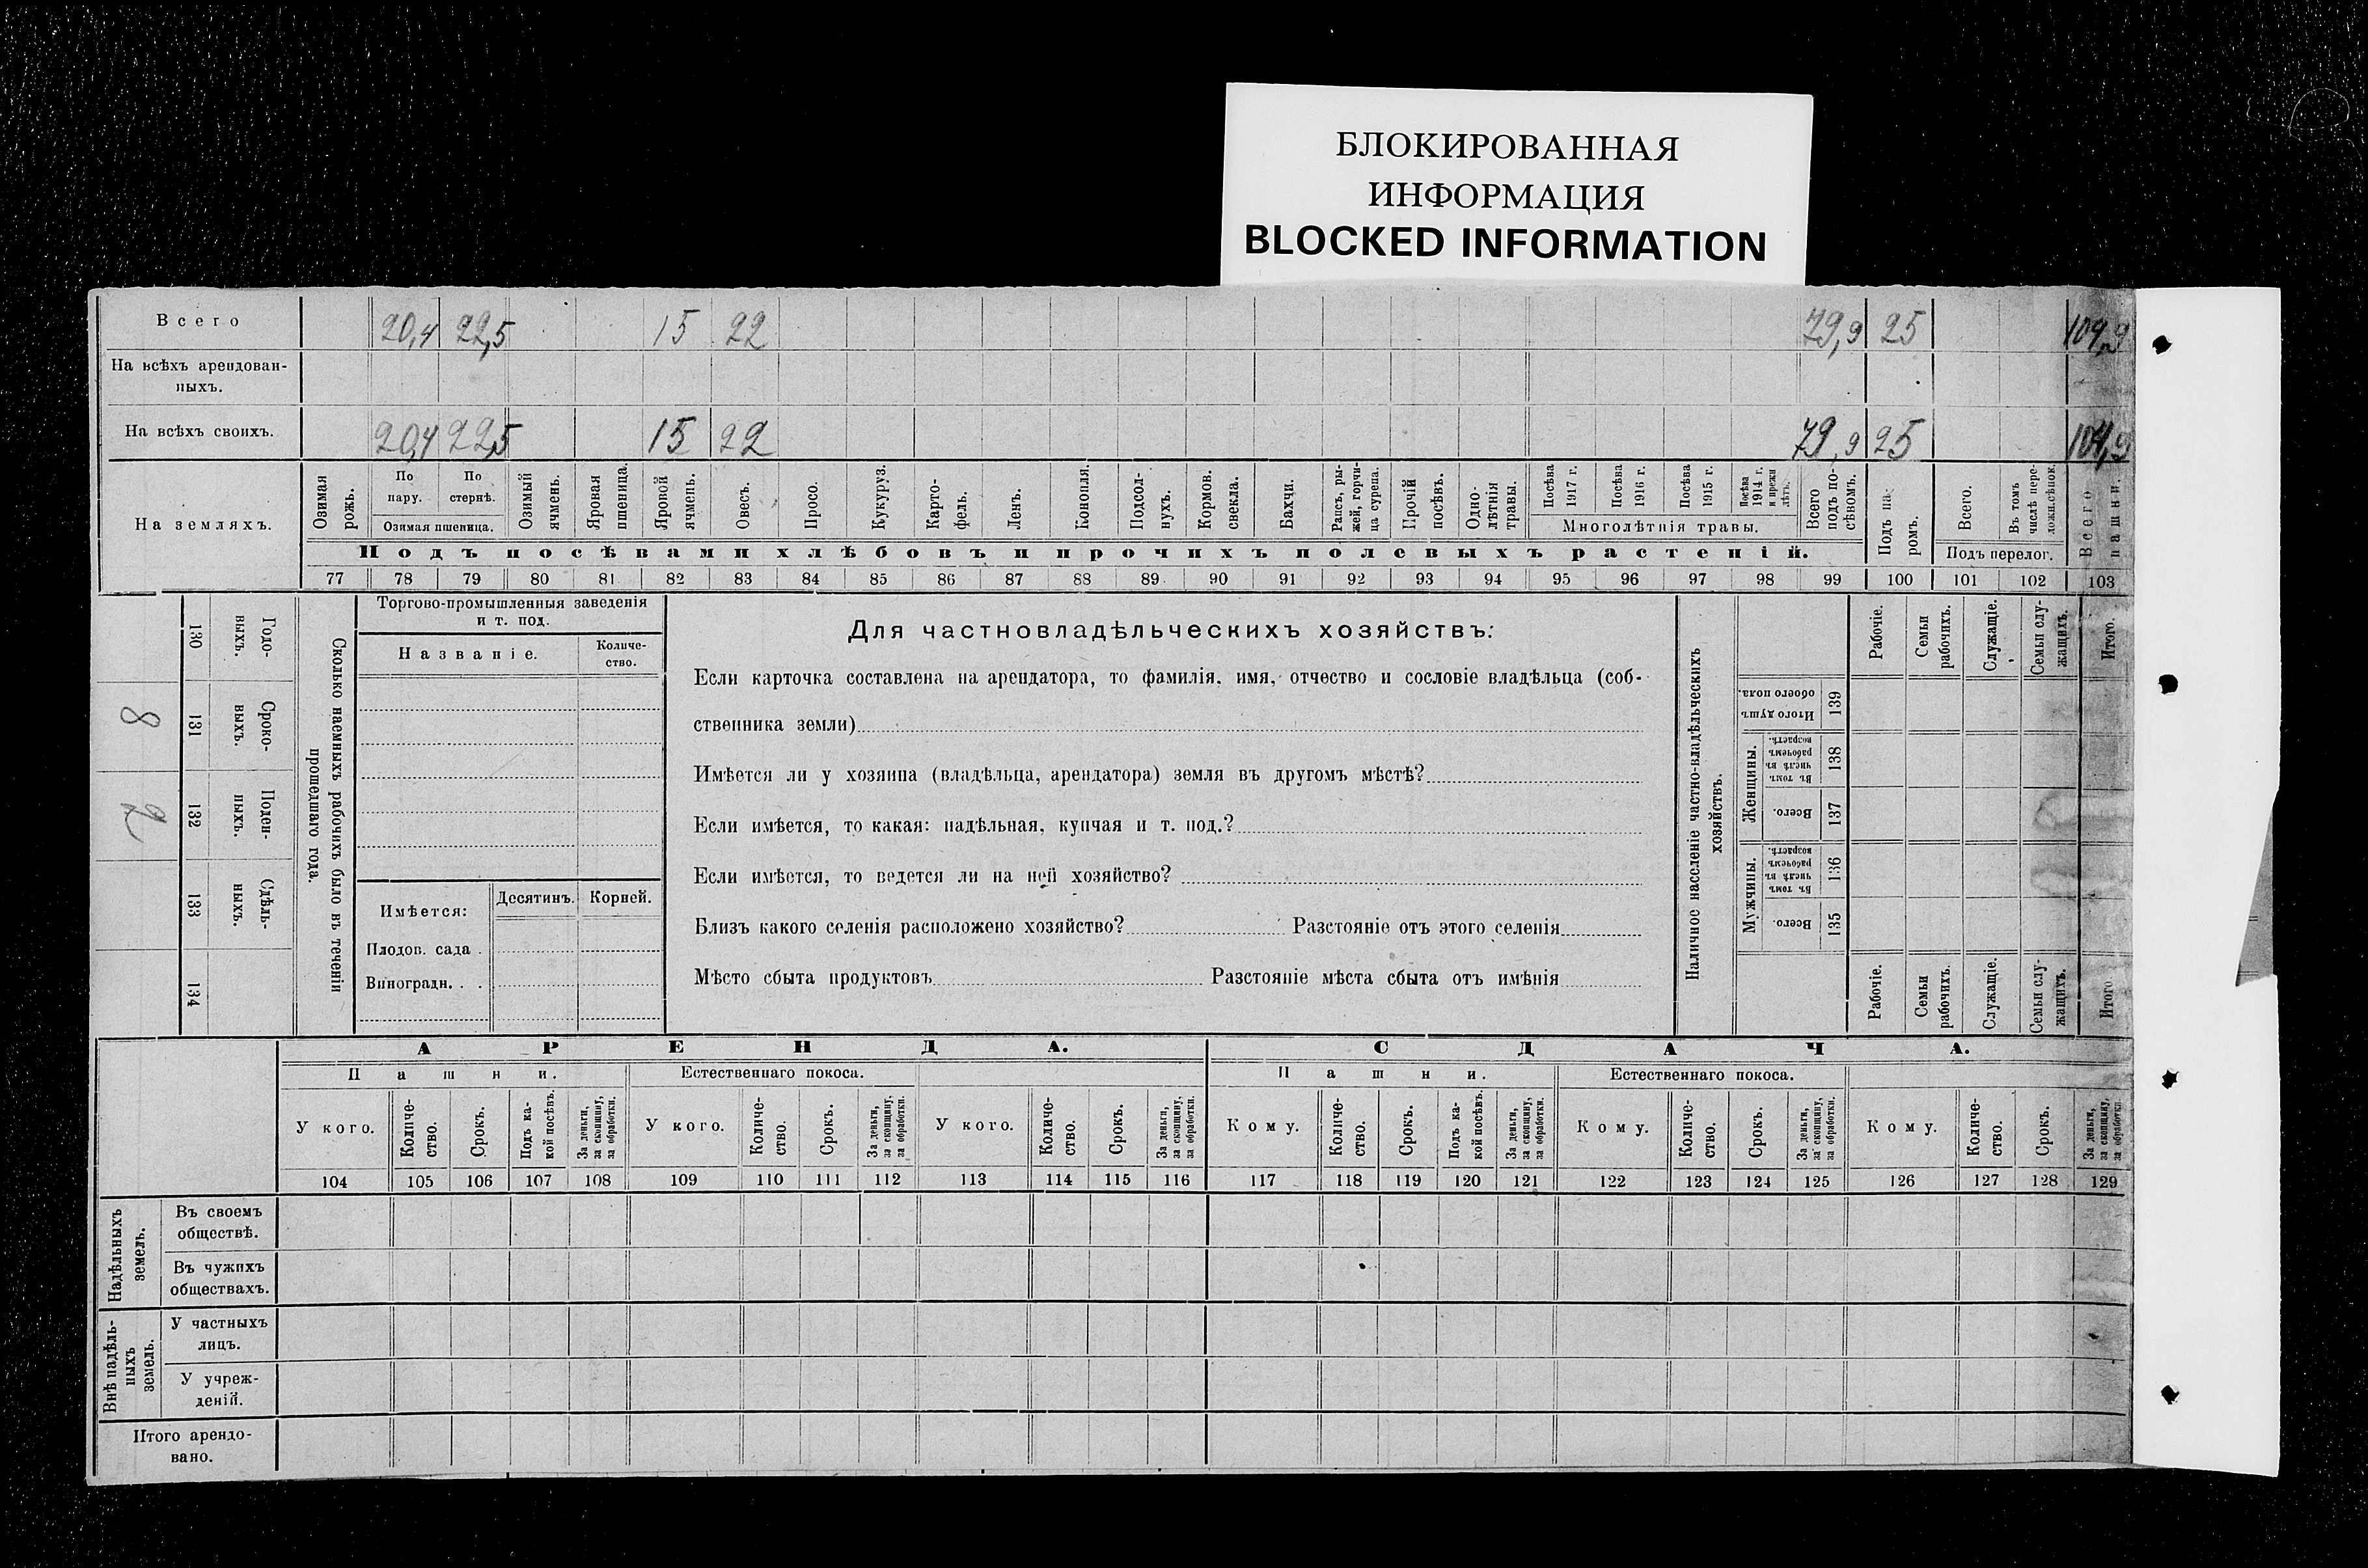 БЛОКИРОВАННАЯ
ИНФОРМАЦИЯ
BLOCKED INFORMATION
Всего 20,4 22,5 15 22 79,9 25 104,9
На всѣхъ арендован-
ныхъ.
На всѣхъ своихъ. 20,4 22,5 15 22 79,9 25 104,9
На земляхъ.
Озимая рожь.
По пару.
По стернѣ.
Озимая пшеница.
Озимый ячмень.
Яровая пшеница.
Яровой ячмень.
Овесъ.
Просо.
Кукуруз.
Карто-
фель.
Ленъ.
Конопля.
Подсол-
нухъ.
Кормов. свекла.
Бахчи.
Рапсъ, ры-
жей, горчи-
ца сурепа.
Прочій посѣвъ.
Одно-
лѣтнія травы.
Посѣва 1917 г.
Посѣва 1916 г.
Посѣва 1915 г.
Посѣва 1914 г. и прежн лѣтъ.
Многолѣтнія травы.
Всего подъ по-
сѣвомъ.
Подъ па-
ромъ.
Всего.
Въ томъ числѣ пере-
ложн.сѣнок.
Подъ перелог.
Всего пашни.
Подъ посѣвами хлѣбовъ и прочихъ полевыхъ растеній.
77 78 79 80 81 82 83 84 85 86 87 88 89 90 91 92 93 94 95 96 97 98 99 100 101 102 103
Годо-
выхъ.
130
Сроко-
выхъ.
131
8
Поден-
ныхъ.
132
2
Сдѣль-
ныхъ.
133
134
Сколько наемныхъ рабочихъ было въ теченіи
прошедшаго года.
Торгово-промышленныя заведенія
и т. под.
Названіе.
Количе-
ство.
Имѣется:
Десятинъ.
Корней.
Плодов. сада .
Виноградн. . .
Для частновладѣльческихъ хозяйствъ:
Если карточка составлена на арендатора, то фамилія, имя, отчество и сословіе владѣльца (соб-
ственника земли)
Имѣется ли у хозяина (владѣльца, арендатора) земля въ другомъ мѣстѣ?
Если имѣется, то какая: надѣльная, купчая и т. под.?
Если имѣется, то ведется ли на ней хозяйство?
Близъ какого селенія расположено хозяйство? Разстояніе отъ этого селенія
Мѣсто сбыта продуктовъ Разстояніе мѣста сбыта отъ имѣнія
Наличное населеніе частно-владѣльческихъ
хозяйствъ.
Рабочіе.
Семьи рабочихъ.
Служащіе.
Семьи слу-
жащихъ.
Итого.
Итого душъ обоего пола.
139
Женщины.
Въ томъ числѣ въ рабочемъ возрастѣ.
138
Всего.
137
Мужчины.
Въ томъ числѣ въ рабочемъ возрастѣ.
136
Всего.
135
Рабочіе.
Семьи рабочихъ.
Служащіе.
Семьи слу-
жащихъ.
Итого
АРЕНДА.
СДАЧА.
Пашни.
Естественнаго покоса.
Пашни.
Естественнаго покоса.
У кого.
Количе-
ство.
Срокъ.
Подъ ка-
кой посѣвъ.
За деньги, за скопщину, за обработки.
У кого.
Количе-
ство.
Срокъ.
За деньги, за скопщину, за обработки.
У кого.
Количе-
ство.
Срокъ.
За деньги, за скопщину, за обработки.
Кому.
Количе-
ство.
Срокъ.
Подъ ка-
кой посѣвъ.
За деньги, за скопщину, за обработки.
Кому.
Количе-
ство.
Срокъ.
За деньги, за скопщину, за обработки.
Кому.
Количе-
ство.
Срокъ.
За деньги, за скопщину, за обработки.
104 105 106 107 108 109 110 111 112 113 114 115 116 117 118 119 120 121 122 123 124 125 126 127 128 129
Надѣльныхъ
земель.
Въ своемъ
обществѣ.
Въ чужихъ
обществахъ.
Внѣ надѣль-
ныхъ
земель.
У частныхъ
лицъ.
У учреж-
деній.
Итого арендо-
вано.